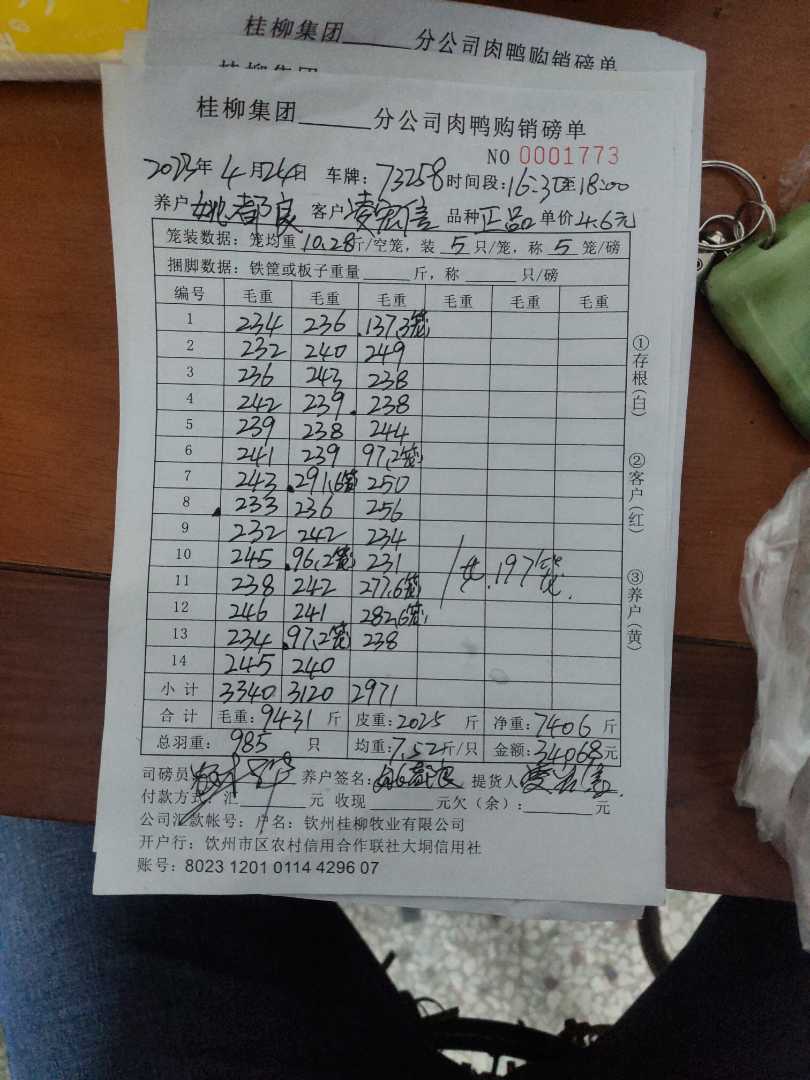 桂柳集团______分公司肉鸭购销磅单
桂柳集团
桂柳集团______分公司肉鸭购销磅单
NO 0001773
2023年 4月24日 车牌:73258时间段:16:30至18:00
养户 姚都良 客户 凌宏信 品种 正品 单价4.6元
笼装数据:笼均重 10.28斤/空笼,装 5 只/笼,称 5 笼/磅
捆脚数据:铁筐或板子重量______斤,称______只/磅
编号 毛重 毛重 毛重 毛重 毛重 毛重
1 234 236 137,3笼
2 232 240 249
3 236 243 238
4 242 239 238
5 239 238 244
6 241 239 97,2笼
7 243 291,6笼 250
8 233 236 256
9 232 242 234
10 245 96,2笼 231 共197笼
11 238 242 277,6笼
12 246 241 282,6笼
13 234 97,2笼 238
14 245 240
小计 3340 3120 2971
合计 毛重:9431斤 皮重:2025斤 净重:7406斤
总羽重:985只 均重:7.52斤/只 金额:34068元
司磅员 养户签名: 提货人
付款方式:汇______元 收现______元欠(余):______元
公司汇款帐号:户名:钦州桂柳牧业有限公司
开户行:钦州市区农村信用合作联社大垌信用社
账号:8023 1201 0114 4296 07
①存根(白)
②客户(红)
③养户(黄)